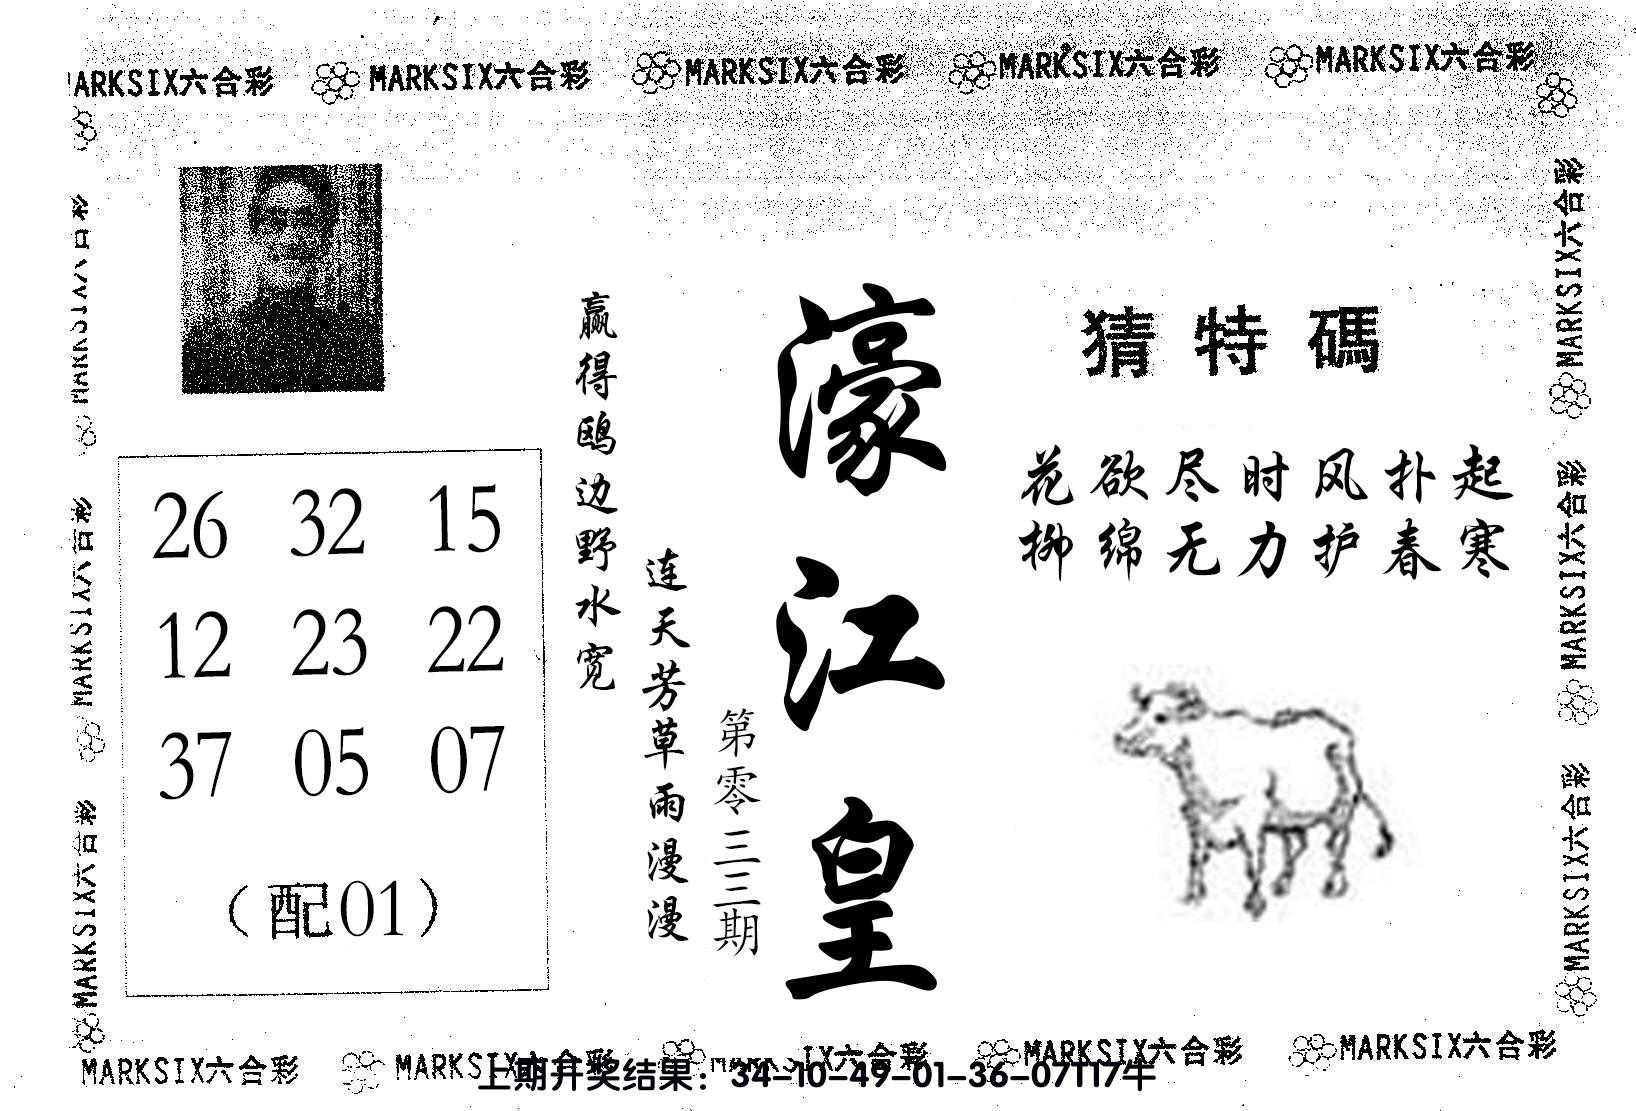 MARKSIX六合彩 MARKSIX六合彩 MARKSIX六合彩 MARKSIX六合彩 MARKSIX六合彩
猜特碼
花欲尽时风扑起
柳绵无力护春寒
濠江皇
第零三三期
连天芳草雨漫漫
赢得鸥边野水宽
26 32 15
12 23 22
37 05 07
（配01）
MARKSIX六合彩
MARKSIX六合彩
MARKSIX六合彩
MARKSIX六合彩
MARKSIX六合彩
MARKSIX六合彩 MARKSIX六合彩 MARKSIX六合彩 MARKSIX六合彩
上期开奖结果：34-10-49-01-36-07T17牛